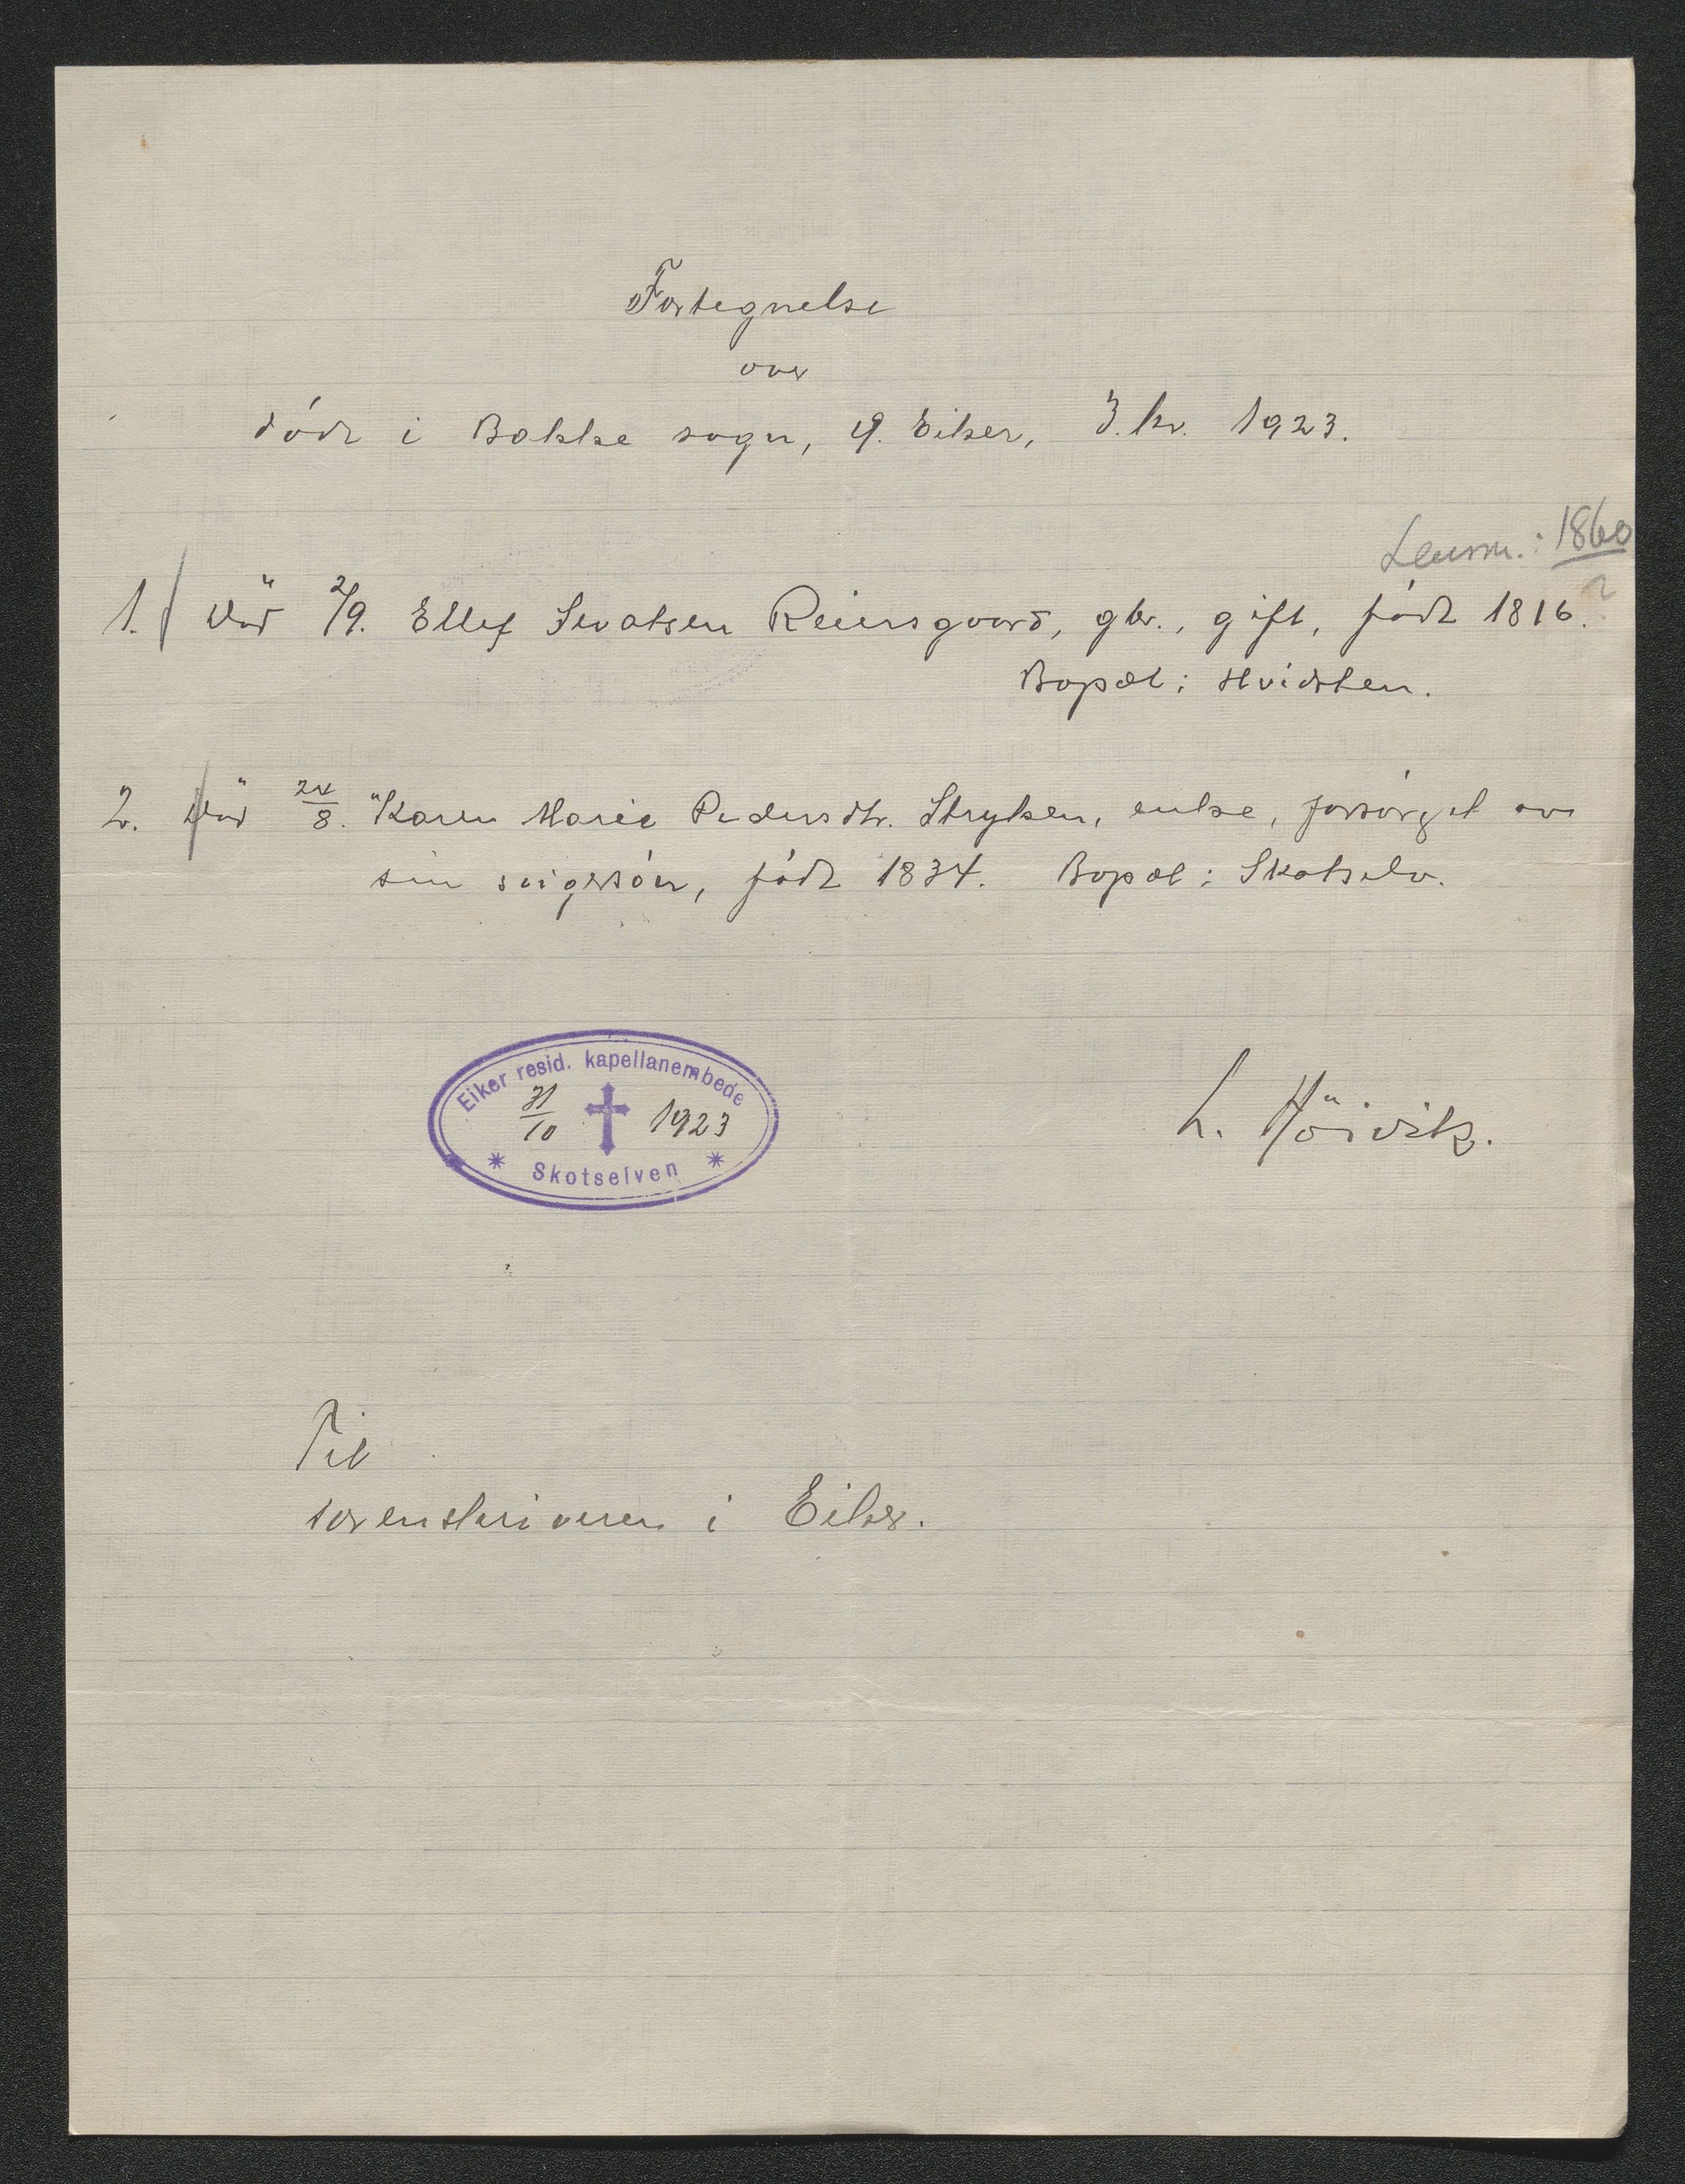 Fortegnelse
over
döde i Bakke sogn, Ø. Eiker, 3. kv. 1923.
Lensm.: 1860
?
1. Död 2/9. Ellef Sivatsen Reiersgaard, gbr., gift, född 1816.
Bopæl: Hvidsten.
2. Död 24/8. Karen Marie Pedersdtr. Stryken, enke, forsörget av
sin svigersön, född 1834. Bopæl: Skotselv.
Eiker resid. kapellanembede
31/10 1923
Skotselven
L. Höivik.
Til
sorenskriveren i Eiker.